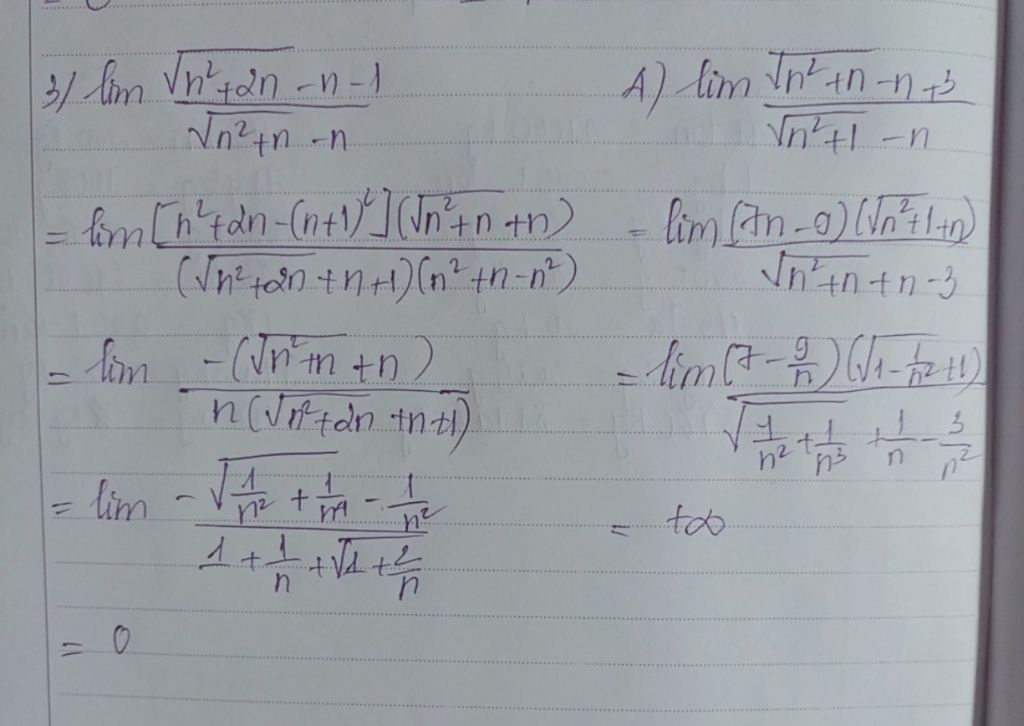 3/ lim (√(n²+2n) - n - 1)/(√(n²+n) - n)
= lim ([n²+2n-(n+1)²](√(n²+n) + n))/((√(n²+2n) + n+1)(n²+n-n²))
= lim (-(√(n²+n) + n))/(n(√(n²+2n) + n+1))
= lim (-√(1/n² + 1/n⁴) - 1/n²)/(1 + 1/n + √(1 + 2/n))
= 0
A) lim (√(n²+n) - n + 3)/(√(n²+1) - n)
= lim ((7n - 9)(√(n²+1) + n))/(√(n²+n) + n - 3)
= lim ((7 - 9/n)(√(1 - 1/n²) + 1))/(√(1/n² + 1/n³) + 1/n - 3/n²)
= +∞